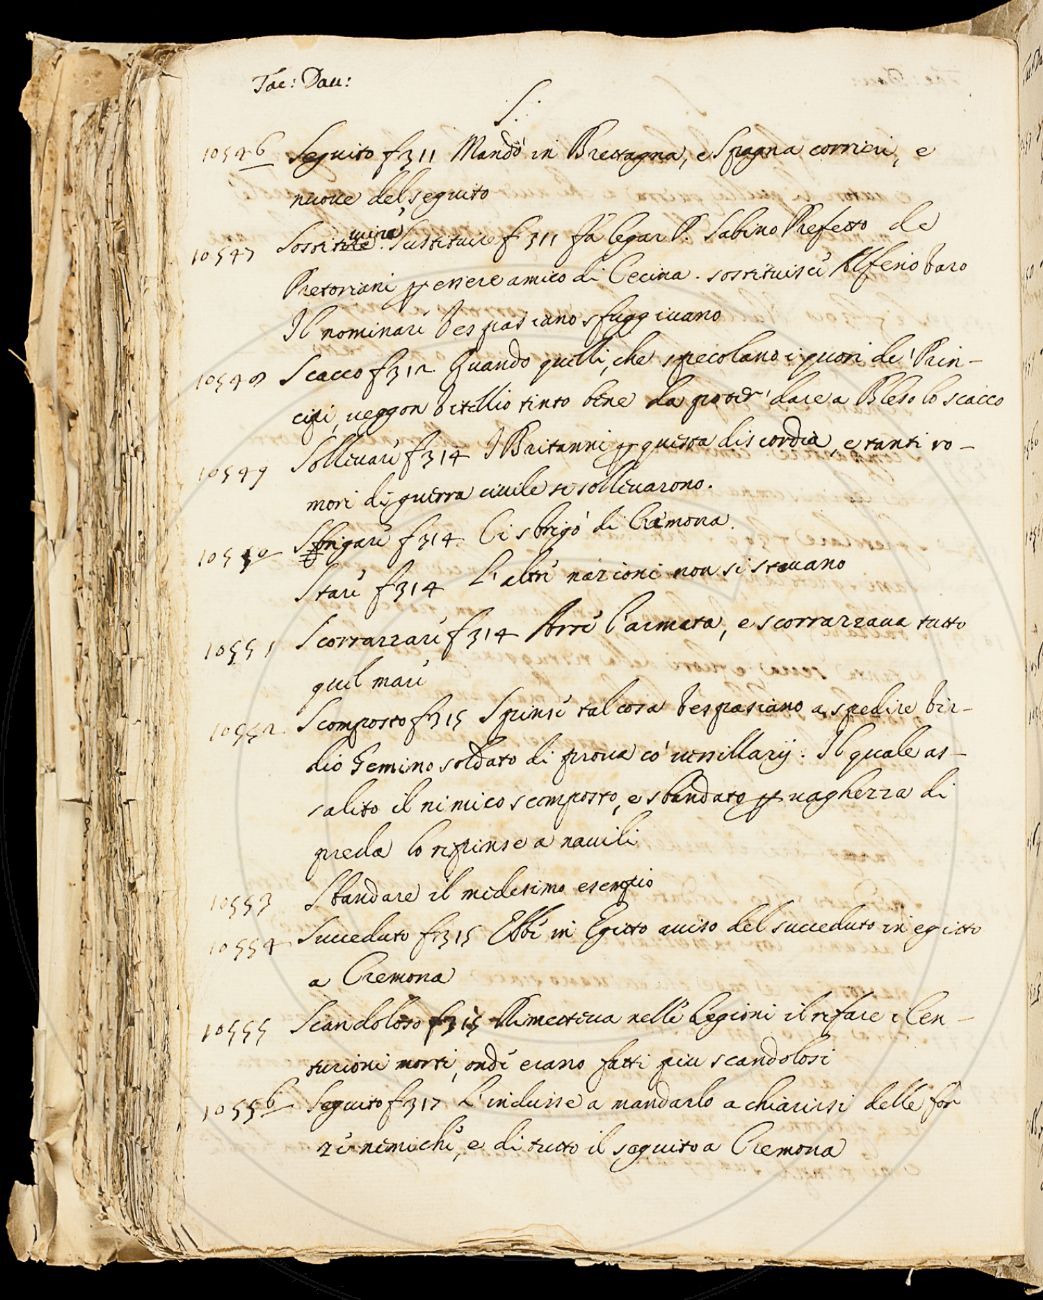 Tac: Dau:
S:
10546 Seguito f 311 Mandò in Brettagna, e Spagna corrieri, e
nuove del seguito
10547 Sostituire Sustituire f 311 fa legar P. Sabino Prefetto de
Pretoriani p essere amico di Cecina. sostituisce Alfeno Varo
Il nominare Vespasiano sfuggivano
10548 Scacco f 312 Quando quelli, che specolano i quori de' Prin-
cipi, veggon Vitellio tinto bene da poter' dare a Bleso lo scacco
10549 Sollevare f 314 I Britanni p questa discordia, e tanti ro-
mori di guerra civile si sollevarono.
10550 Sbrigare f 314 Ci sbrigò di Cremona.
Stare f 314 L'altre nazioni non si stavano
10551 Scorrazzare f 314 Arse l'armata, e scorrazzava tutto
quel mare
10552 Scomposto f 315 Spinse tal cosa Vespasiano a spedire Vir-
dio Gemino soldato di prova co' vessillarij. Il quale as-
salito il nimico scomposto, e sbandato p vaghezza di
preda lo rispinse a navili
10553 Sbandare il medesimo esempio
10554 Succeduto f 315 Ebbe in Egitto aviso del succeduto in egitto
a Cremona
10555 Scandoloso f 315 Rimetteva nelle Legioni il rifare i Cen-
turioni morti, onde erano fatti piu scandolosi
10556 Seguito f 317 L'indusse a mandarlo a chiarirsi delle for
ze nemiche, e di tutto il seguito a Cremona